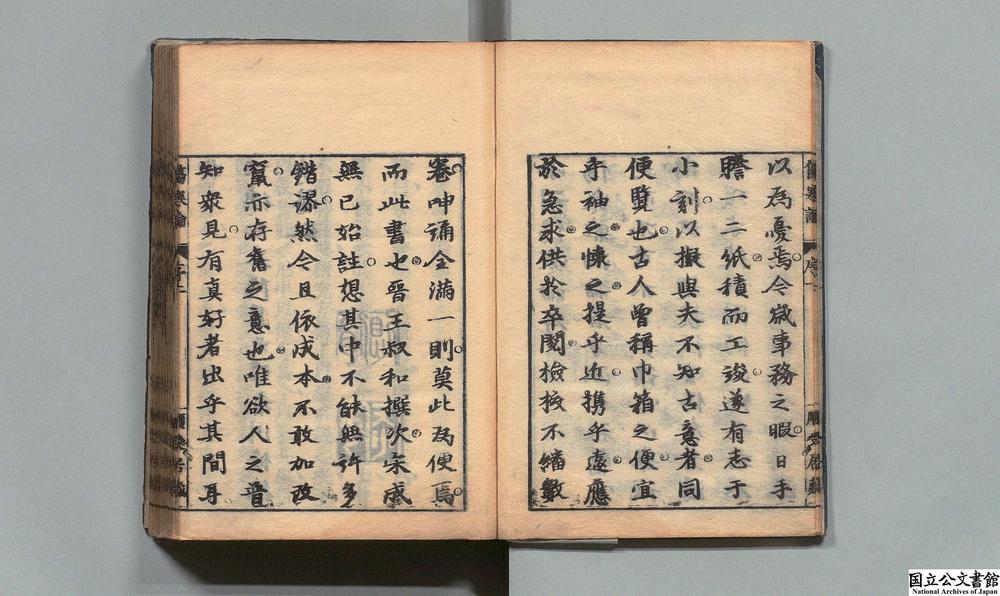 傷寒論 序
以為憂焉今歲事務之暇日手
謄一二紙積而工竣遂有志于
小刻以擬與夫不知古意者同
便覽也古人曾稱巾箱之便宜
乎袖之懷之提乎近携乎遠應
於急求供於卒閱檢按不繙數
卷呻誦全滿一則莫此為便焉
而此書也晉王叔和撰次宋成
無已始註想其中不能無許多
錯謬然今且依成本不敢加改
竄亦存舊之意也唯欲人之普
知衆見有真好者出乎其間耳
傷寒論 序二
国立公文書館
National Archives of Japan